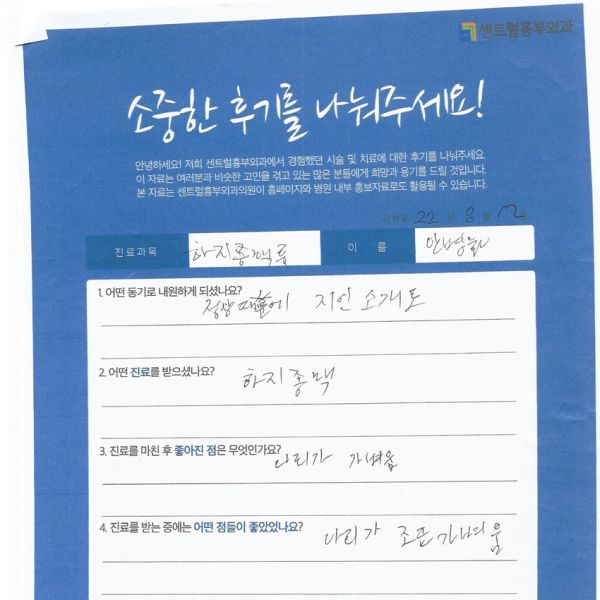 센트럴흉부외과
소중한 후기를 나눠주세요!
안녕하세요! 저희 센트럴흉부외과에서 경험했던 시술 및 치료에 대한 후기를 나눠주세요
이 자료는 여러분과 비슷한 고민을 겪고 있는 많은 분들에게 희망과 용기를 드릴 것입니다.
본 자료는 센트럴흉부외과의원이 홈페이지와 병원 내부 홍보자료로도 활용될 수 있습니다.
작성일 22 년 8 월 12
진료과목 하지종맥류 이 름
1. 어떤 동기로 내원하게 되셨나요?
지인 소개로
2. 어떤 진료를 받으셨나요?
하지종맥
3. 진료를 마친 후 좋아진 점은 무엇인가요?
다리가 가벼움
4. 진료를 받는 중에는 어떤 점들이 좋았었나요?
다리가 조금 가벼움